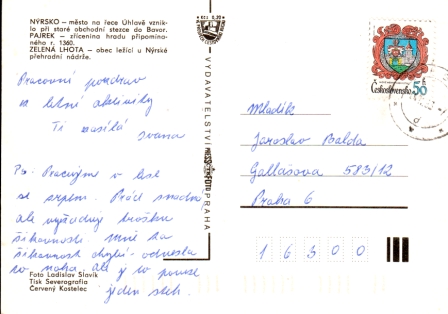 NÝRSKO – město na řece Úhlavě vznik-
lo při staré obchodní stezce do Bavor.
PAJREK – zřícenina hradu připomína-
ného r. 1360.
ZELENÁ LHOTA – obec ležící u Nýrské
přehradní nádrže.
Pracovní pozdrav
z letní aktivity
Ti zasílá
Ivana
Ps: Pracujem v lese
se srpem. Práce snadná,
ale vyžaduje trošku
šikovnosti. Mně ta
šikovnost chybí - odnesla
to noha, ale je to pouze
jeden steh.
Foto Ladislav Slavík
Tisk Severografia
Červený Kostelec
VYDAVATELSTVÍ
PRAHA
Československo 50
Mladík
Jaroslav Balda
Gallašova 583/12
Praha 6
16300